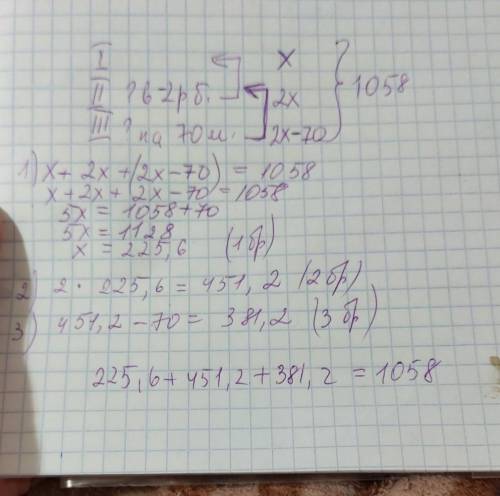 I x
II ? в 2 р б. 2x } 1058
III ? на 70 м. 2x-70
1) x + 2x + (2x-70) = 1058
x + 2x + 2x - 70 = 1058
5x = 1058+70
5x = 1128
x = 225,6 (1 бр)
2) 2 · 225,6 = 451,2 (2 бр)
3) 451,2 - 70 = 381,2 (3 бр)
225,6 + 451,2 + 381,2 = 1058